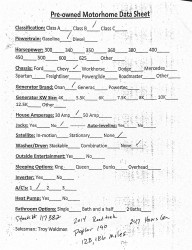 Pre-owned Motorhome Data Sheet
Classification: Class A Class B Class C
Powertrain: Gasoline Diesel
Horsepower: 300 340 350 360 380 400
450 500 600 625 Other
Chassis: Ford Chevy Workhorse Dodge Mercedes
Spartan Freightliner PowerGlide Roadmaster Other
Generator Brand: Onan Generac Powertec
Generator KW Size: 4K
House Amperage: 30 Amp 50 Amp
Jacks: Yes No Auto-leveling: Yes
Satellite: In-motion Stationary None
Washer/Dryer: Stackable Combination None
Outside Entertainment: Yes No
Sleeping Options: King Queen Bunks Overhead
Inverter: Yes No
A/C's: 1 2 3
Heat Pump: Yes No
Bathroom Options: Single Bath and a half 2 Baths
Stock# 117882 2014 Roadtrek 247 Hours Gen
Salesman: Troy Waldman 190
128,186 Miles